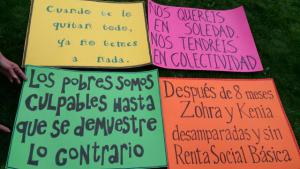 Cuando te lo
quitan todo,
ya no temes
a nada.
NOS QUEREIS
EN SOLEDAD.
NOS TENDRÉIS
EN COLECTIVIDAD
LOS POBRES SOMOS
CULPABLES HASTA
QUE SE DEMUESTRE
LO CONTRARIO
Después de 8 meses
Zohra y Kenia
desamparadas y sin
Renta Social Básica